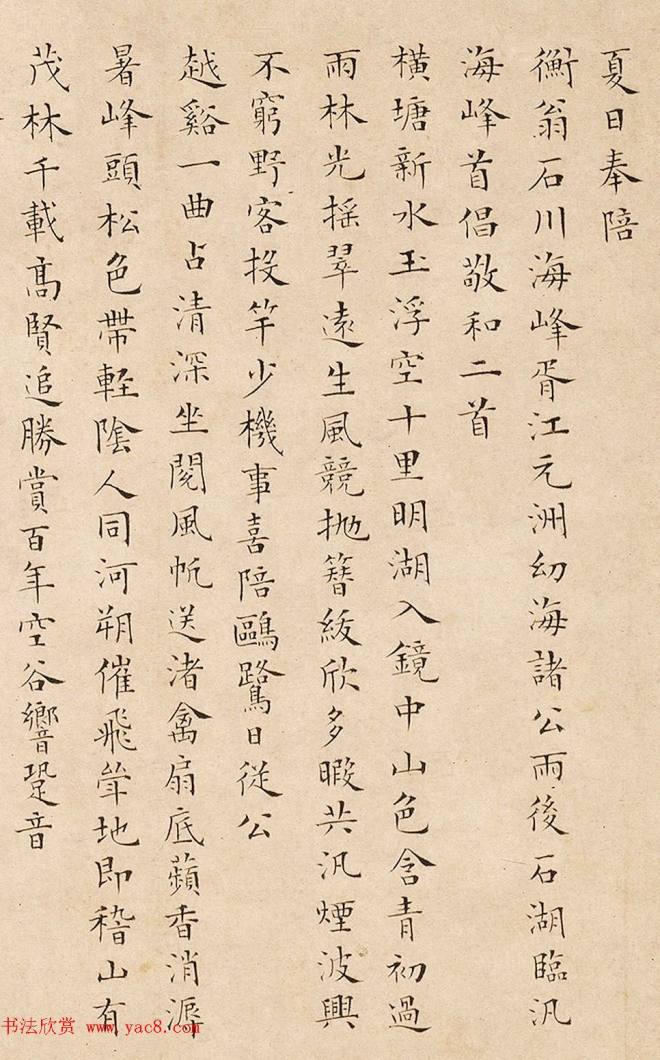 夏日奉陪
衡翁石川海峰胥江元洲幼海諸公雨後石湖臨汎
海峰首倡敬和二首
橫塘新水玉浮空十里明湖入鏡中山色含青初過
雨林光搖翠遠生風競拋簪紱欣多暇共汎煙波興
不窮野客投竿少機事喜陪鷗鷺日從公
越谿一曲占清深坐閱風帆送渚禽扇底蘋香消溽
暑峰頭松色帶輕陰人同河朔催飛斝地即稽山有
茂林千載高賢追勝賞百年空谷響跫音
书法欣赏 www.yac8.com